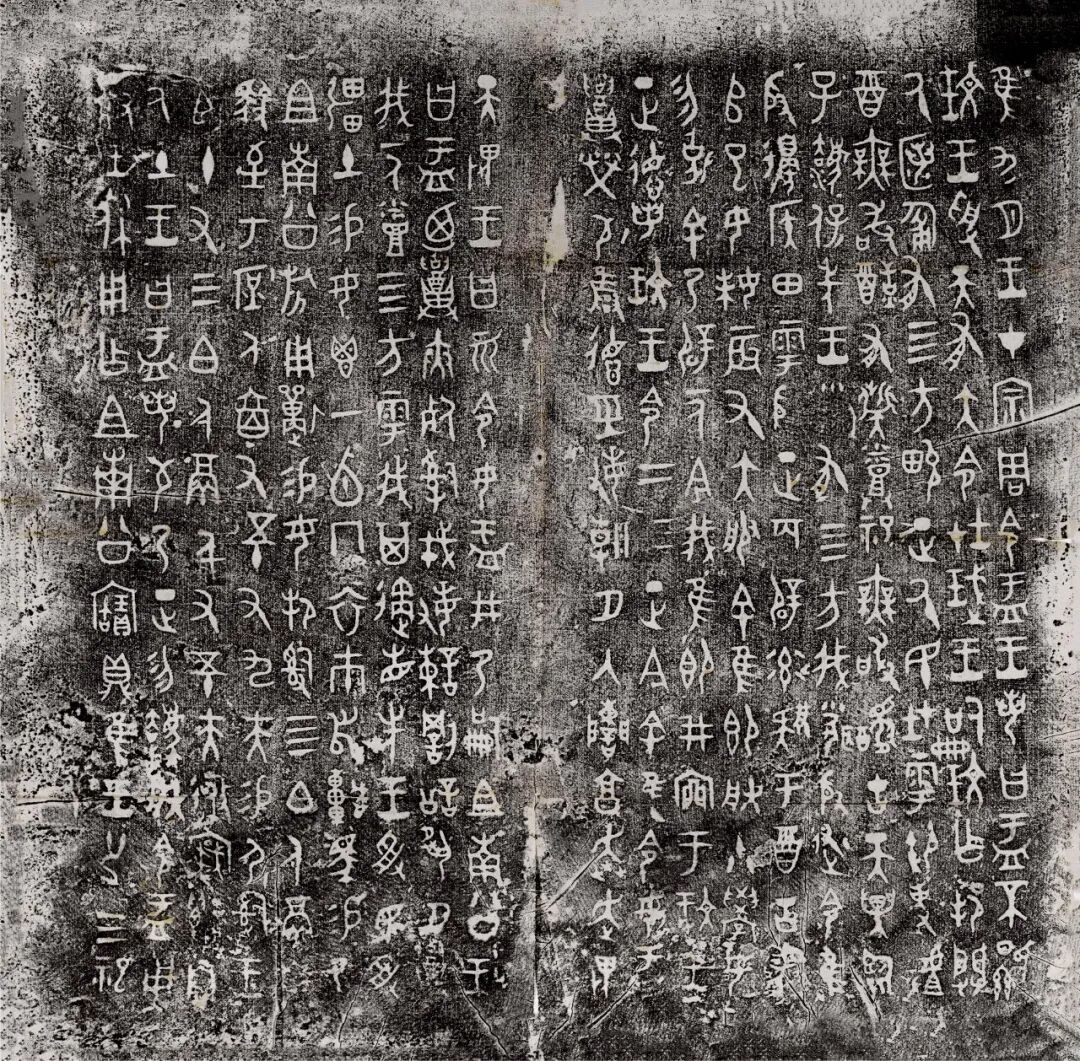 隹九月王才宗周令盂王若曰盂不顯
玟王受天有大令在珷王嗣玟乍邦闢
厥匿匍有四方畯正厥民在雩御事
酉無敢有祀無敢古天異臨
子灋保先王有四方我聞殷述令隹
殷邊侯田雩殷正百辟率肄于酉古喪
𠂤已女妹辰又大服余隹即朕小學女
勿余乃辟一人今我隹即井于玟王
正德若玟王令二三正今余隹令女盂
召敬雝德巠敏朝夕入讕享奔走畏
天畏王曰令女盂井乃嗣且南公王
曰盂廼召夾死司戎敏諫罰訟夙夕召
我一人烝四方雩我其遹省先王受民受
疆土易女鬯一卣冂衣巿舄車馬易乃
且南公旂用狩易女邦司四白人鬲自
馭至于庶人六百又五十又九夫易尸司王
臣十又三白人鬲千又五十夫自
厥土王曰盂若敬乃正勿灋朕令盂用
對王休用乍且南公寶鼎隹王廿又三祀